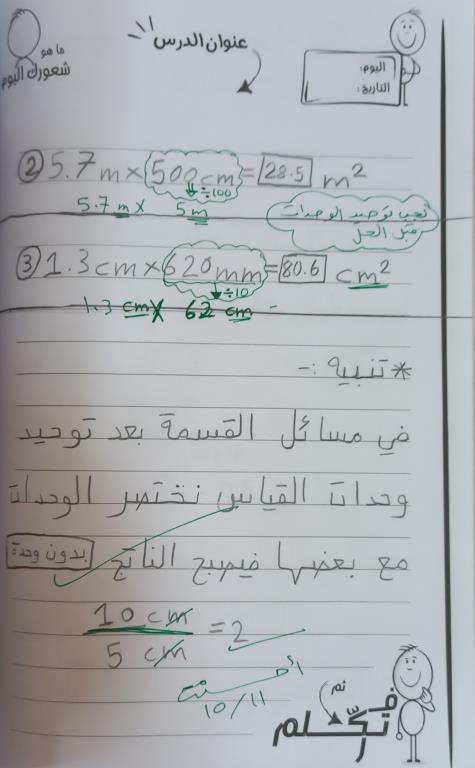 ما هو
شعورك اليوم
عنوان الدرس
اليوم:
التاريخ:
② 5.7 m × 500 cm = 28.5 m²
÷100
5.7 m × 5 m
يجب توحيد الوحدات
قبل الحل
③ 1.3 cm × 620 mm = 80.6 cm²
÷10
1.3 cm × 62 cm
* تنبيه :-
في مسائل القسمة بعد توحيد
وحدات القياس نختصر الوحدات
مع بعضها فيصبح الناتج بدون وحدة
10 cm
5 cm
= 2
أحسنت
10/11
ثم
فكّر
تكلم